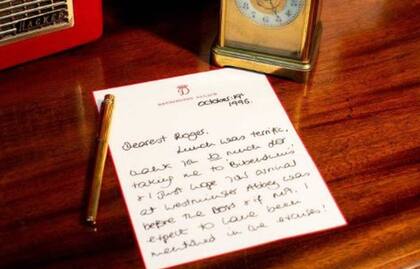 HACKER
KENSINGTON PALACE
October 1st
1996.
Dearest Roger.
Lunch was terrific.
thank you so much for
taking me to Bibendum's
& I just hope your arrival
at Westminster Abbey was
before the Boys & if not, I
expect to have been
mentioned in the excuses!